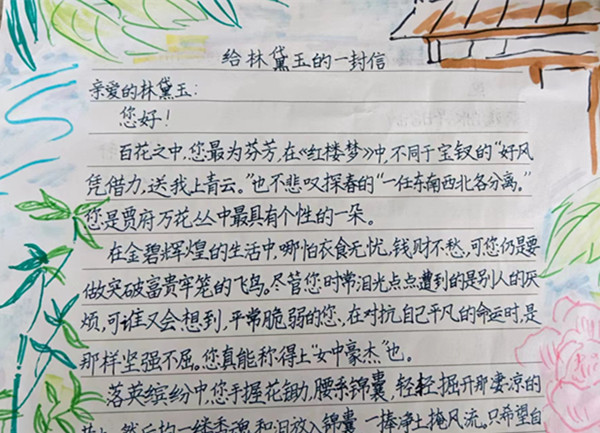 给林黛玉的一封信
亲爱的林黛玉：
您好！
百花之中,您最为芬芳,在《红楼梦》中,不同于宝钗的“好风
凭借力,送我上青云。”也不悲叹探春的“一任东南西北各分离。”
您是贾府万花丛中最具有个性的一朵。
在金碧辉煌的生活中,哪怕衣食无忧,钱财不愁,可您仍是要
做突破富贵牢笼的飞鸟。尽管您时常泪光点点遭到的是别人的厌
烦,可谁又会想到,平常脆弱的您,在对抗自己平凡的命运时,是
那样坚强不屈。您真能称得上“女中豪杰”也。
落英缤纷中,您手握花锄,腰系锦囊,轻轻掘开那凄凉的
然后均一缕香魂和泪放入锦囊,一捧净土掩风流。只希望自